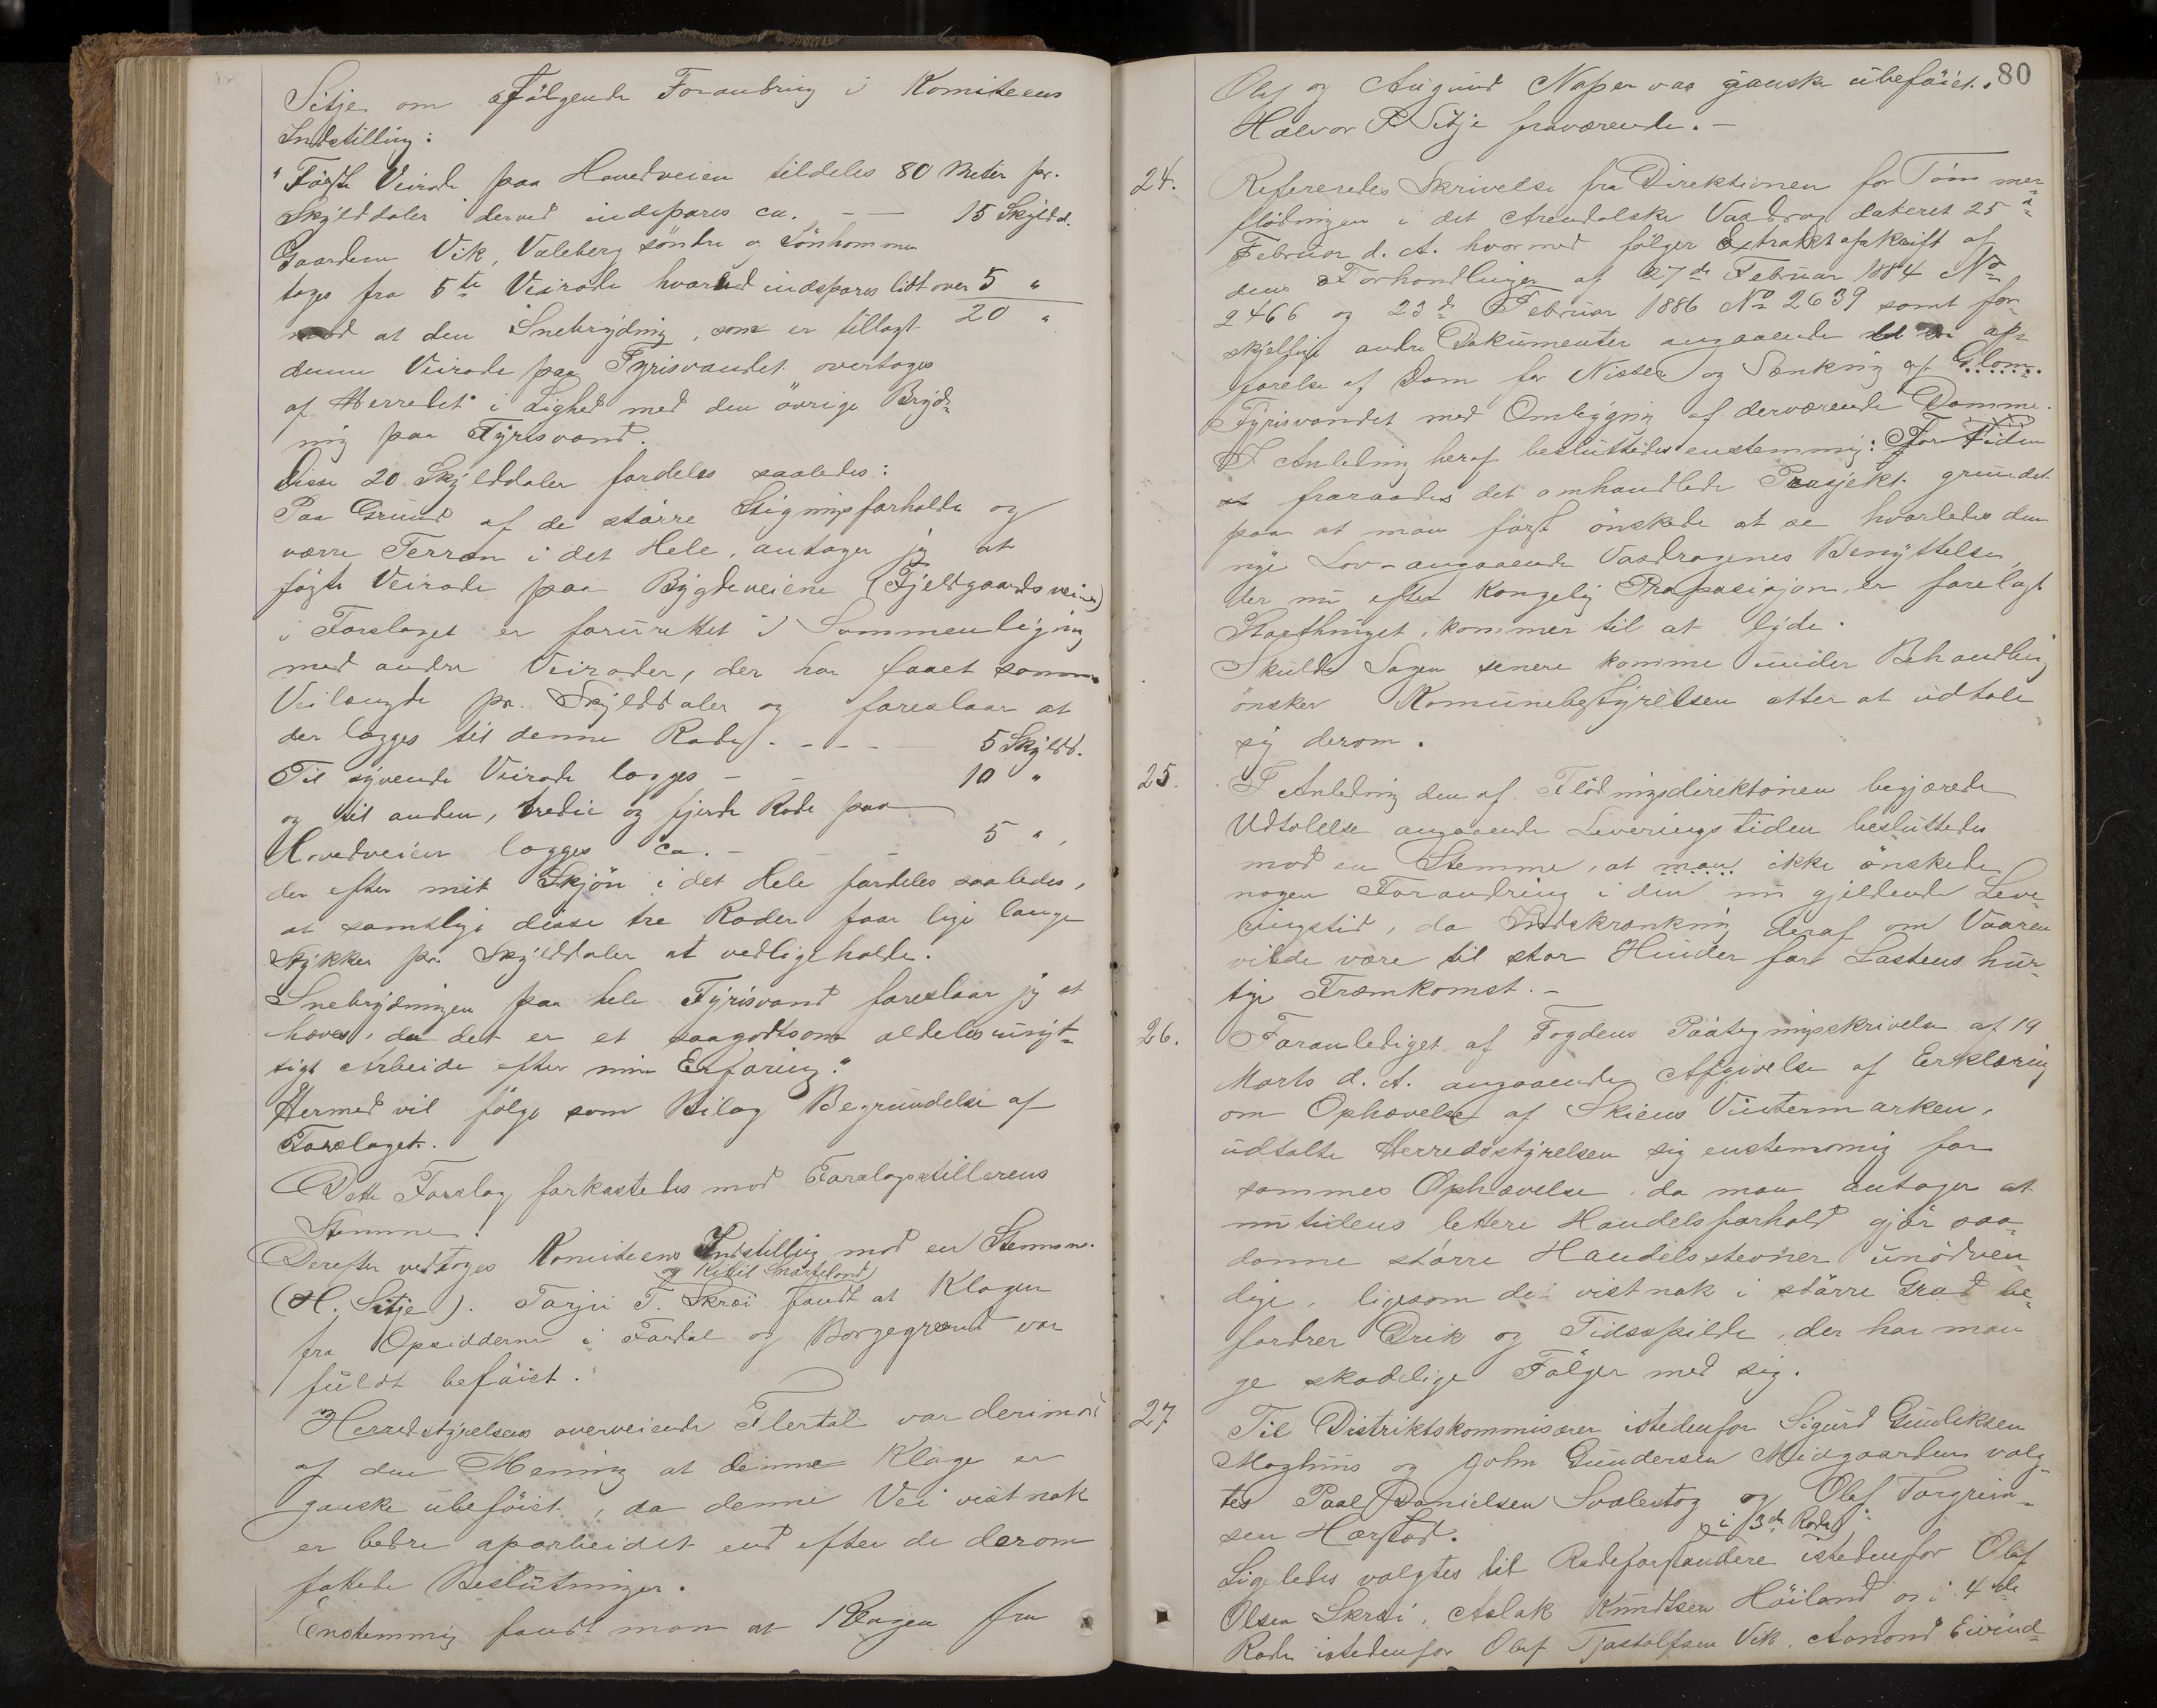 Sitje om følgende Forandring i Komiteens
Indstilling:
"Første Veirode paa Hovedveien tildeles 80 Meter pr.
Skylddaler derved indspares ca. - — 15 Skyldd.
Gaardene Vik, Valeberg söndre og Sönhommen
tages fra 5te Veirode hvorved indspares lidt over 5 "
mod at den Snebrydning, som er tillagt 20 "
denne Veirode paa Fyrisvandet overtages
af Herredet i Lighed med den övrige Bryd-
ning paa Fyrisvand.
Disse 20 Skylddaler fordeles saaledes:
Paa Grund af de større Stigningsforholde og
værre Terræn i det Hele, antager jeg at
første Veirode paa Bygdeveiene (Fjeldgaardsveien)
i Forslaget er forurettet i Sammenligning
med andre Veiroder, der har faaet samme
Veilængde pr. Skylddaler og foreslaar at
der lægges til denne Rode - - - 5 Skyldd.
Til syvende Veirode lægges - - 10 "
og til anden, tredie og fjerde Rode paa
Hovedveien lægges ca. - - - 5 "
der efter mit Skjøn i det Hele fordeles saaledes,
at samtlige disse tre Roder faar lige lange
Stykker pr. Skylddaler at vedligeholde.
Snebrydningen paa hele Fyrisvand foreslaar jeg at
hæves, da det er et saagodtsom aldeles unyt-
tigt Arbeide efter min Erfaring."
Hermed vil følge som Bilag Begrundelse af
Forslaget.
Dette Forslag forkastedes mod Forslagsstillerens
Stemme.
Derefter vedtoges Komiteens Indstilling mod en Stemme.
og Kittil Snarteland
(H. Sitje). Tarjei T. Skræi fandt at Klagen
fra Opsidderne i Fardal og Borgegrænd var
fuldt beføiet.
Herredstyrelsens overveiende Flertal var derimod
af den Mening at denne Klage er
ganske ubeføiet, da denne Vei vistnok
er bedre oparbeidet end efter de derom
fattede Beslutninger.
Enstemmig fandt man at Klagen fra
80
Olaf og Augund Naper var ganske ubeføiet.
Halvor P. Sitje fraværende. -
24. Refereredes Skrivelse fra Direktionen for Tømmer-
flødningen i det Arendalske Vasdrag dateret 25de
Februar d. A. hvormed følger Extraktafskrift af
dens Forhandlinger af 27de Februar 1884 No
2466 og 23de Februar 1886 No 2639 samt for-
skjellige andre Dokumenter angaaende op-
førelse af Dam for Nisser og Sænkning af
Fyrisvandet med Ombygning af derværende Damme.
I Anledning heraf besluttedes enstemmig: For Tiden
fraraades det omhandlede Prosjekt grundet
paa at man först önskede at se hvorledes den
nye Lov angaaende Vasdragenes Benyttelse,
der nu efter Kongelig Proposisjon er forelagt
Storthinget, kommer til at lyde.
Skulde Sagen senere komme under Behandling
ønsker Komunebestyrelsen atter at udtale
sig derom.
25. I Anledning den af Flødningsdirektionen begjærede
Udtalelse angaaende Leveringstiden besluttedes
mod en Stemme, at man ikke ønskede
nogen Forandring i den nu gjeldende Leve-
ringstid, da Indskrænkning deraf om Vaaren
vilde være til stor Hinder for Lastens hur-
tige Fremkomst. -
26. Foranlediget af Fogdens Paategningsskrivelse af 19
Marts d. A. angaaende Afgivelse af Erklæring
om Ophævelse af Skiens Vintermarken,
udtalte Herredsstyrelsen sig enstemmig for
sammes Ophævelse, da man antager at
nutidens lettere Handelsforhold gjør saa-
danne større Handelsstevner unødven-
dige, ligesom de vistnok i större Grad be-
fordrer Drik og Tidsspilde, der har man-
ge skadelige Følger med sig.
27 Til Distriktskommisærer istedenfor Sigurd Gunliksen
Moghuus og John Gundersen Midgaarden valg-
tes Paal Danielsen Svalestog og Olaf Torgrim-
sen Harstad.
i 3de Rode
Ligeledes valgtes til Rodeforstandere istedenfor Olaf
Olsen Skræi, Aslak Knudtsen Høiland og i 4de
Rode istedenfor Olaf Tjostolfsen Vik, Aanond Eivind-